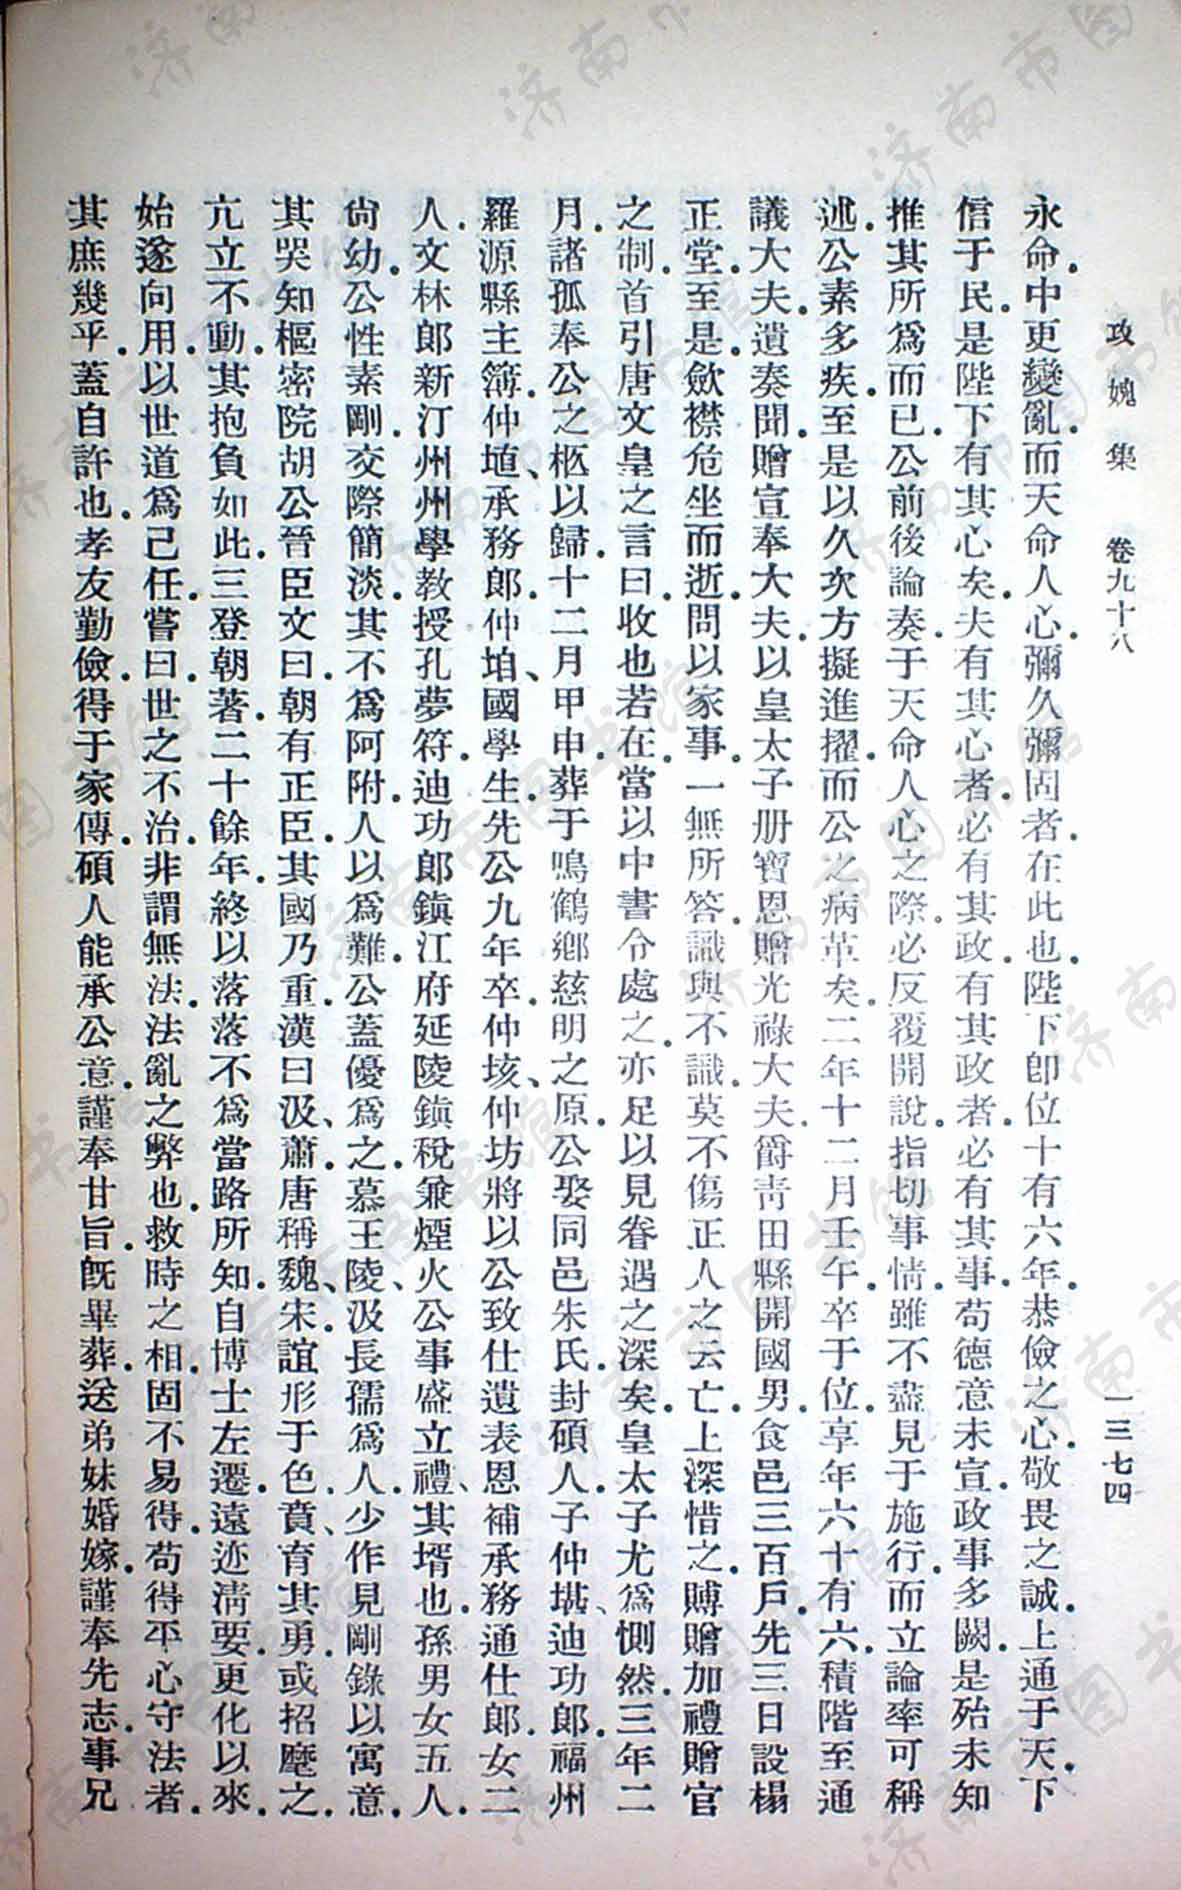 攻媿集 卷九十八 一三七四
永命.中更變亂.而天命人心.彌久彌固者.在此也.陛下卽位十有六年.恭儉之心.敬畏之誠.上通于天.下
信于民.是陛下有其心矣.夫有其心者.必有其政.有其政者.必有其事.苟德意未宣.政事多闕.是殆未知
推其所爲而已.公前後論奏.于天命人心之際.必反覆開說.指切事情.雖不盡見于施行.而立論率可稱
述.公素多疾.至是以久次方擬進擢.而公之病革矣.二年十二月壬午.卒于位.享年六十有六.積階至通
議大夫.遺奏聞.贈宣奉大夫.以皇太子册寶恩.贈光祿大夫.爵靑田縣開國男.食邑三百戶.先三日設榻
正堂.至是.斂襟危坐而逝.問以家事.一無所答.識與不識.莫不傷正人之云亡.上深惜之.賻贈加禮.贈官
之制.首引唐文皇之言曰.收也若在.當以中書令處之.亦足以見眷遇之深矣.皇太子尤爲惻然.三年二
月.諸孤奉公之柩以歸.十二月甲申.葬于鳴鶴鄕慈明之原.公娶同邑朱氏.封碩人.子仲堪、迪功郞.福州
羅源縣主簿.仲埴、承務郞.仲垍、國學生.先公九年卒.仲垓、仲坊將以公致仕遺表恩.補承務通仕郞.女二
人.文林郞新汀州州學敎授孔夢符.迪功郞鎭江府延陵鎭稅兼煙火公事盛立禮、其壻也.孫男女五人.
尙幼.公性素剛.交際簡淡.其不爲阿附.人以爲難.公蓋優爲之.慕王陵、汲長孺爲人.少作見剛錄以寓意.
其哭知樞密院胡公晉臣文曰.朝有正臣.其國乃重.漢曰汲、蕭.唐稱魏、宋.誼形于色.賁、育其勇.或招麾之.
亢立不動.其抱負如此.三登朝著.二十餘年.終以落落不爲當路所知.自博士左遷.遠迹淸要.更化以來.
始遂向用.以世道爲己任.嘗曰.世之不治.非謂無法.法亂之弊也.救時之相.固不易得.苟得平心守法者.
其庶幾乎.蓋自許也.孝友勤儉.得于家傳.碩人能承公意.謹奉甘旨.旣畢葬.送弟妹婚嫁.謹奉先志.事兄